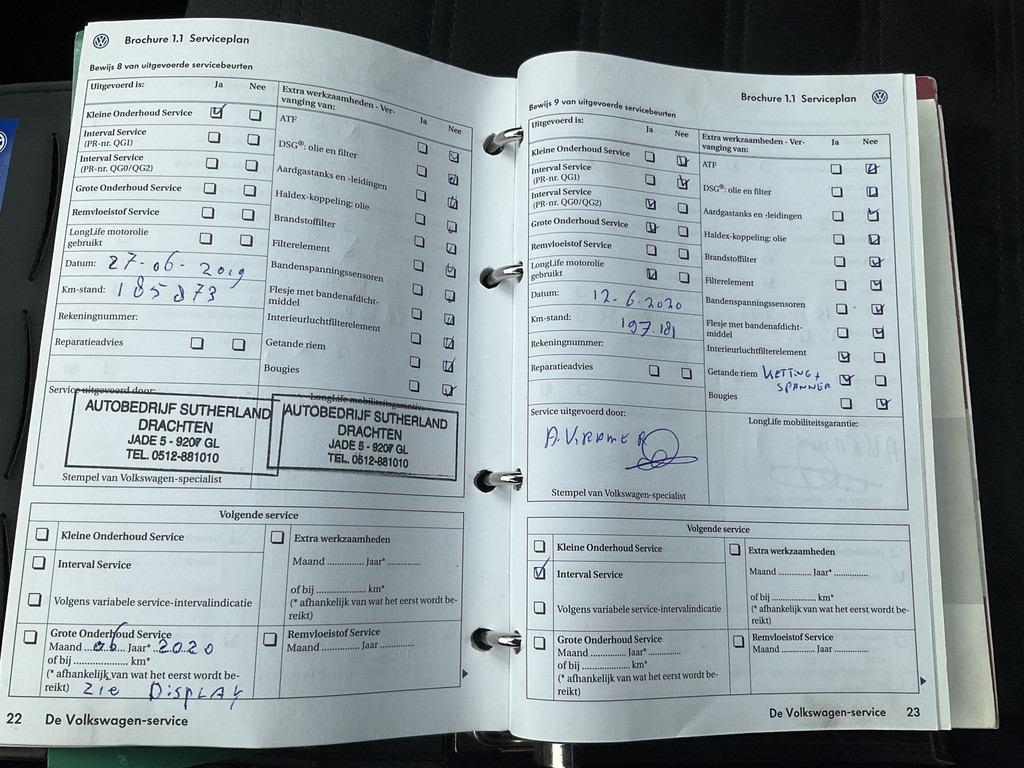 Brochure 1.1 Serviceplan
Bewijs 8 van uitgevoerde servicebeurten
Uitgevoerd is:
Ja
Nee
Kleine Onderhoud Service
Interval Service
(PR-nr. QG1)
Interval Service
(PR-nr. QG0/QG2)
Grote Onderhoud Service
Remvloeistof Service
LongLife motorolie
gebruikt
Datum: 27-06-2019
Km-stand: 185873
Rekeningnummer:
Reparatieadvies
Extra werkzaamheden - Ver-
vanging van:
Ja
Nee
ATF
DSG®: olie en filter
Aardgastanks en -leidingen
Haldex-koppeling: olie
Brandstoffilter
Filterelement
Bandenspanningssensoren
Flesje met bandenafdicht-
middel
Interieurluchtfilterelement
Getande riem
Bougies
Service uitgevoerd door:
LongLife mobiliteitsgarantie:
AUTOBEDRIJF SUTHERLAND
DRACHTEN
JADE 5 - 9207 GL
TEL. 0512-881010
AUTOBEDRIJF SUTHERLAND
DRACHTEN
JADE 5 - 9207 GL
TEL. 0512-881010
Stempel van Volkswagen-specialist
Volgende service
Kleine Onderhoud Service
Interval Service
Volgens variabele service-intervalindicatie
Grote Onderhoud Service
Maand ...06... Jaar* ..2020
of bij ..................... km*
(* afhankelijk van wat het eerst wordt be-
reikt) Zie Display
Extra werkzaamheden
Maand .............. Jaar* ..............
of bij ..................... km*
(* afhankelijk van wat het eerst wordt be-
reikt)
Remvloeistof Service
Maand .............. Jaar ..............
22 De Volkswagen-service
Brochure 1.1 Serviceplan
Bewijs 9 van uitgevoerde servicebeurten
Uitgevoerd is:
Ja
Nee
Kleine Onderhoud Service
Interval Service
(PR-nr. QG1)
Interval Service
(PR-nr. QG0/QG2)
Grote Onderhoud Service
Remvloeistof Service
LongLife motorolie
gebruikt
Datum: 12-6-2020
Km-stand: 197.181
Rekeningnummer:
Reparatieadvies
Extra werkzaamheden - Ver-
vanging van:
Ja
Nee
ATF
DSG®: olie en filter
Aardgastanks en -leidingen
Haldex-koppeling: olie
Brandstoffilter
Filterelement
Bandenspanningssensoren
Flesje met bandenafdicht-
middel
Interieurluchtfilterelement
Getande riem KETTING +
SPANNER
Bougies
Service uitgevoerd door:
LongLife mobiliteitsgarantie:
A. KRAMER
Stempel van Volkswagen-specialist
Volgende service
Kleine Onderhoud Service
Interval Service
Volgens variabele service-intervalindicatie
Grote Onderhoud Service
Maand .............. Jaar* ..............
of bij ..................... km*
(* afhankelijk van wat het eerst wordt be-
reikt)
Extra werkzaamheden
Maand .............. Jaar* ..............
of bij ..................... km*
(* afhankelijk van wat het eerst wordt be-
reikt)
Remvloeistof Service
Maand .............. Jaar ..............
De Volkswagen-service 23